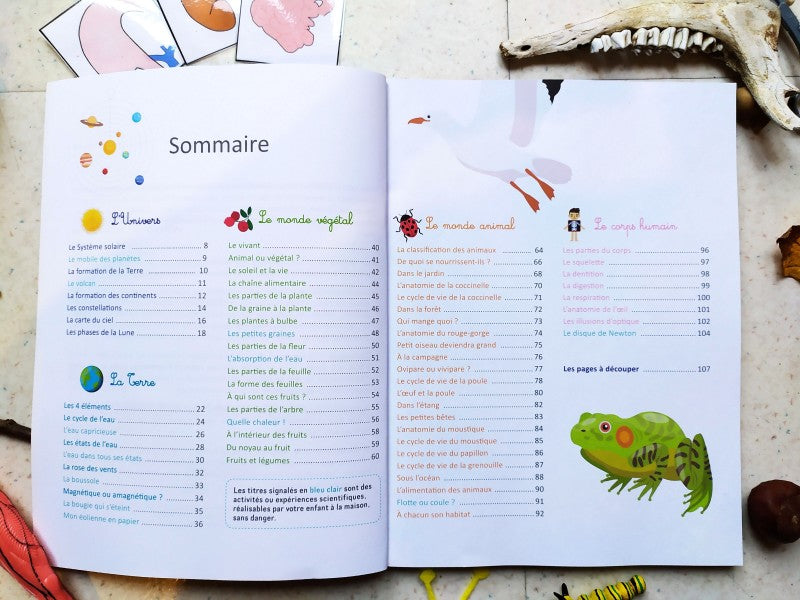 Sommaire
L'Univers
Le Système solaire 8
Le mobile des planètes 9
La formation de la Terre 10
Le volcan 11
La formation des continents 12
Les constellations 14
La carte du ciel 16
Les phases de la Lune 18
La Terre
Les 4 éléments 22
Le cycle de l'eau 24
L'eau capricieuse 26
Les états de l'eau 28
L'eau dans tous ses états 30
La rose des vents 32
La boussole 33
Magnétique ou amagnétique ? 34
La bougie qui s'éteint 35
Mon éolienne en papier 36
Le monde végétal
Le vivant 40
Animal ou végétal ? 41
Le soleil et la vie 42
La chaîne alimentaire 44
Les parties de la plante 45
De la graine à la plante 46
Les plantes à bulbe 47
Les petites graines 48
Les parties de la fleur 50
L'absorption de l'eau 51
Les parties de la feuille 52
La forme des feuilles 53
À qui sont ces fruits ? 54
Les parties de l'arbre 55
Quelle chaleur ! 56
À l'intérieur des fruits 58
Du noyau au fruit 59
Fruits et légumes 60
Les titres signalés en bleu clair sont des
activités ou expériences scientifiques,
réalisables par votre enfant à la maison,
sans danger.
Le monde animal
La classification des animaux 64
De quoi se nourrissent-ils ? 66
Dans le jardin 68
L'anatomie de la coccinelle 70
Le cycle de vie de la coccinelle 71
Dans la forêt 72
Qui mange quoi ? 73
L'anatomie du rouge-gorge 74
Petit oiseau deviendra grand 75
À la campagne 76
Ovipare ou vivipare ? 77
Le cycle de vie de la poule 78
L'œuf et la poule 80
Dans l'étang 82
Les petites bêtes 83
L'anatomie du moustique 84
Le cycle de vie du moustique 85
Le cycle de vie du papillon 86
Le cycle de vie de la grenouille 87
Sous l'océan 88
L'alimentation des animaux 90
Flotte ou coule ? 91
À chacun son habitat 92
Le corps humain
Les parties du corps 96
Le squelette 97
La dentition 98
La digestion 99
La respiration 100
L'anatomie de l'œil 101
Les illusions d'optique 102
Le disque de Newton 104
Les pages à découper 107